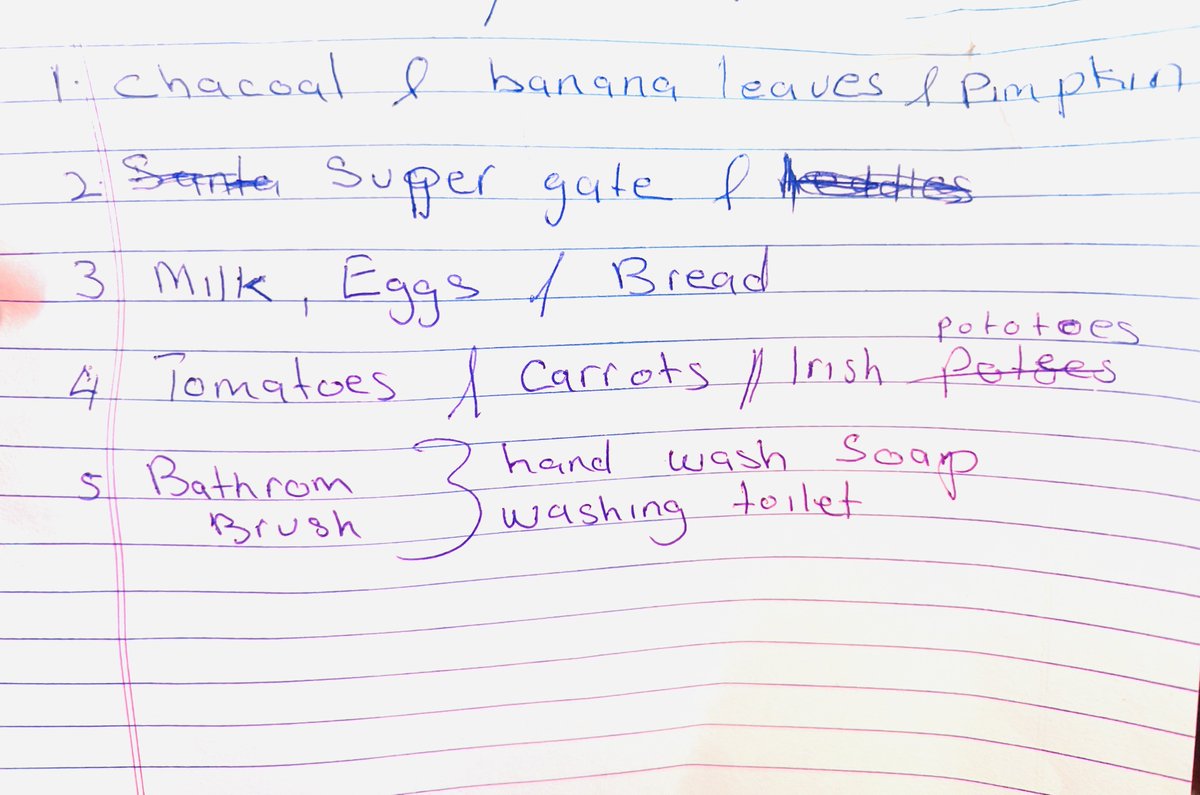 1. Chacoal & banana leaves & Pimpkin
2. Super gate &
3 Milk, Eggs & Bread
potatoes
4 Tomatoes & Carrots // Irish
5 Bathrom } hand wash Soap
Brush washing toilet